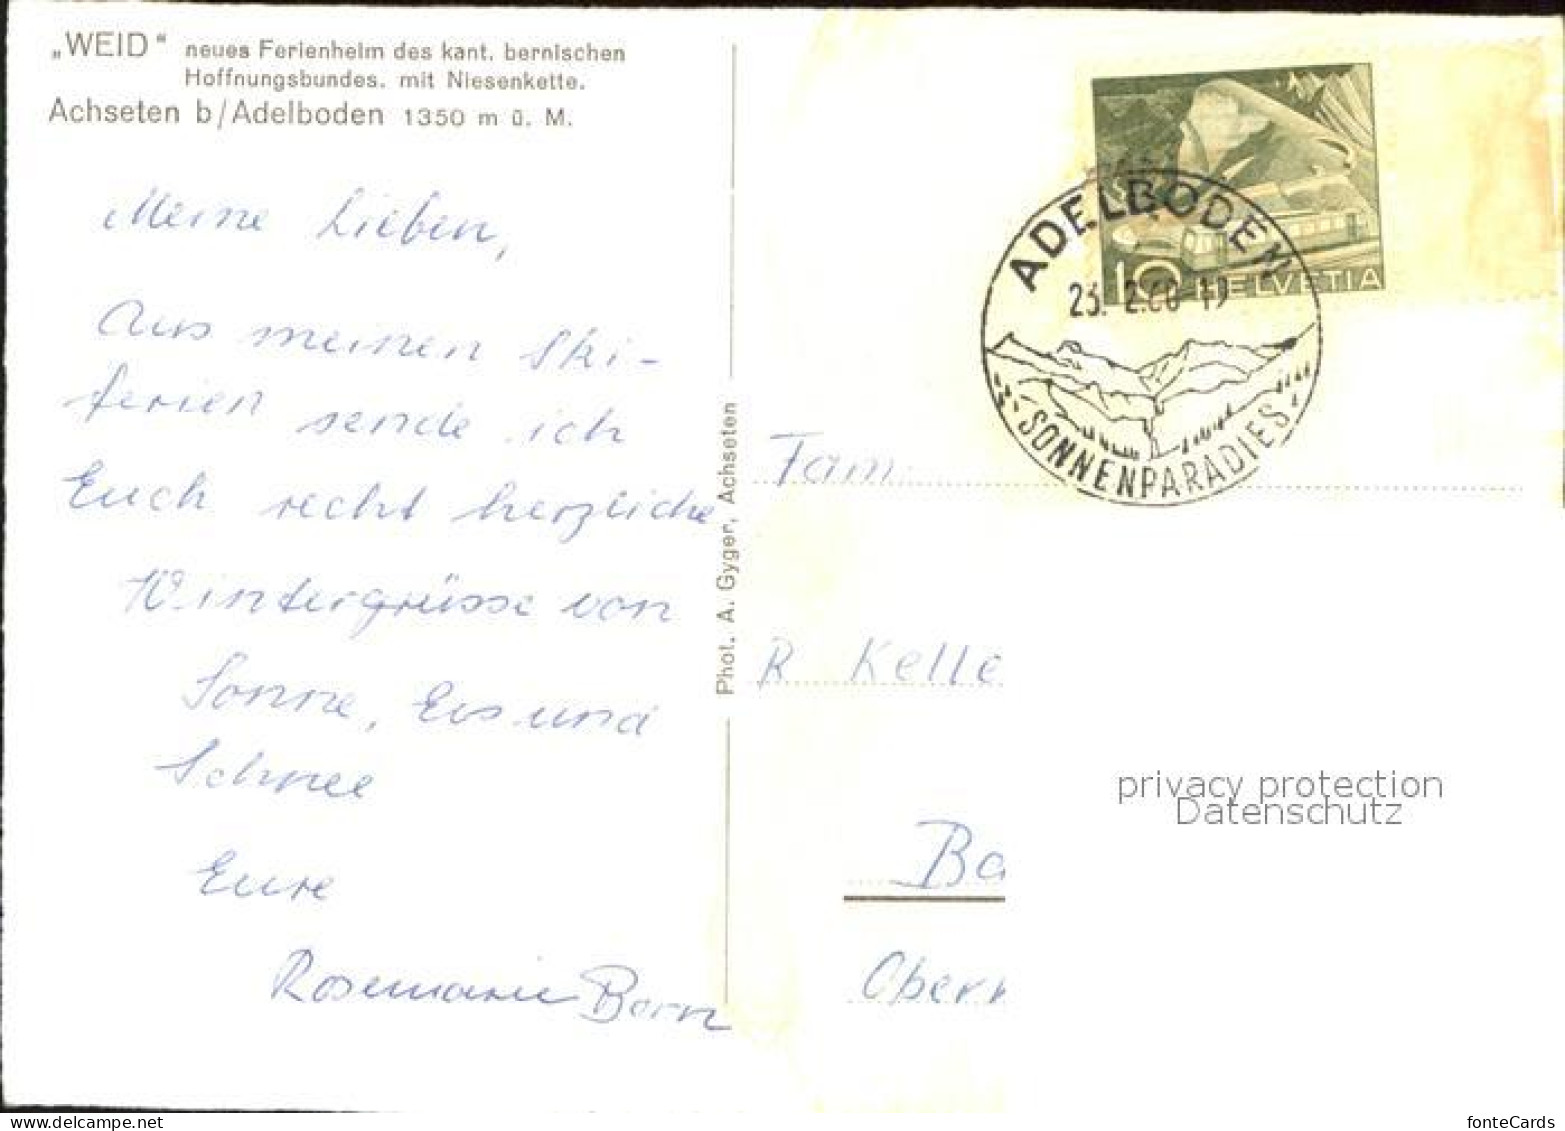 „WEID“ neues Ferienheim des kant. bernischen
Hoffnungsbundes. mit Niesenkette.
Achseten b/Adelboden 1350 m ü. M.
Meine Lieben,
Aus meinen Ski-
ferien sende ich
Euch recht herzliche
Wintergrüsse von
Sonne, Eis und
Schnee
Eure
Rosemarie Born
Phot. A. Gyger, Achseten
HELVETIA
10
ADELBODEN
23. 2.60-19
SONNENPARADIES
Fam.
R Kelle
Ba
Ober
privacy protection
Datenschutz
fonteCards